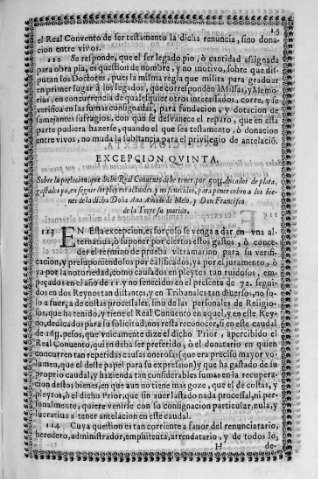 15
el Real Convento de ser testamento la dicha renuncia, sino dona-
cion entre vivos.
112 Se responde, que el ser legado pio, ò cantidad assignada
para obra pia, es question de nombre, y no motivo, sobre que dis-
putan los Doctores, pues la misma regla que milita para graduar
en primer lugar à los legados, que corresponden à Missas, y Me-
rias, en concurrencia de qualesquier otros interessados, corre, y se
verifica en las formas consignadas, para fundacion y dotacion de
semejantes sufragios, con què se desvanece el reparo, que en esta
parte pudiera hazerse, quando el que sea testamento, ò donacion
entre vivos, no muda la substancia para el privilegio de antelaciò.
EXCEPCION QVINTA.
Sobre la pretension, que dicho Real Convento dize tener, por ducados de plata,
gastados por en seguir los pleytos actuales, y no fenecidos, para poner cobro a los bie-
nes de la dicha Doña Ana Añasco de Melo, y Don Francisco
de la Torre su marido.
113 EN Esta excepcion, es forçoso se venga a dar en vna al-
ternativa, ò suponer por ciertos estos gastos, ò conce-
der el termino de prueba vltramarino para su verifi-
cacion, y presuponiendolos por calificados, ya por el juramento, ò
ya por la notoriedad, como causados en pleytes tan ruidosos, em-
peçados en el año de 11. y no fenecidos en el presente de 72. segui-
dos en dos Reynos tan distantes, y en Tribunales tan diversos, no so-
lo a fuerça de costas processales, sino de las personales de Religio-
sos, que ha tenido, y tiene el Real Convento en aquel, y en este Rey-
no, dedicados para la solicitud, nos resta reconocer, si en este caudal
de pesos, que vnicamente dize el dicho Prior, apercibido el
Real Convento, quien deba ser preferido, ò el donatario en quien
concurren tan repetidas causas onerosas (que era preciso mayor vo-
lumen, que el deste papel para su expression) y que ha gastado de su
proprio caudal, y hazienda tan considerables sumas en la recupera-
cion destos bienes, en que aun no tiene mas goze, que el de costas, y
pleytos, ò el dicho Prior, que sin aver lastado nada processal, ni per-
sonalmente, quiere venirse con su consignacion particular, nula, y
lucrativa a tener antelacion en este caudal.
114 Cuya question es tan corriente a favor del renunciatario,
heredero, administrador, emphiteuta, arrendatario, y de todos lo,
H de-